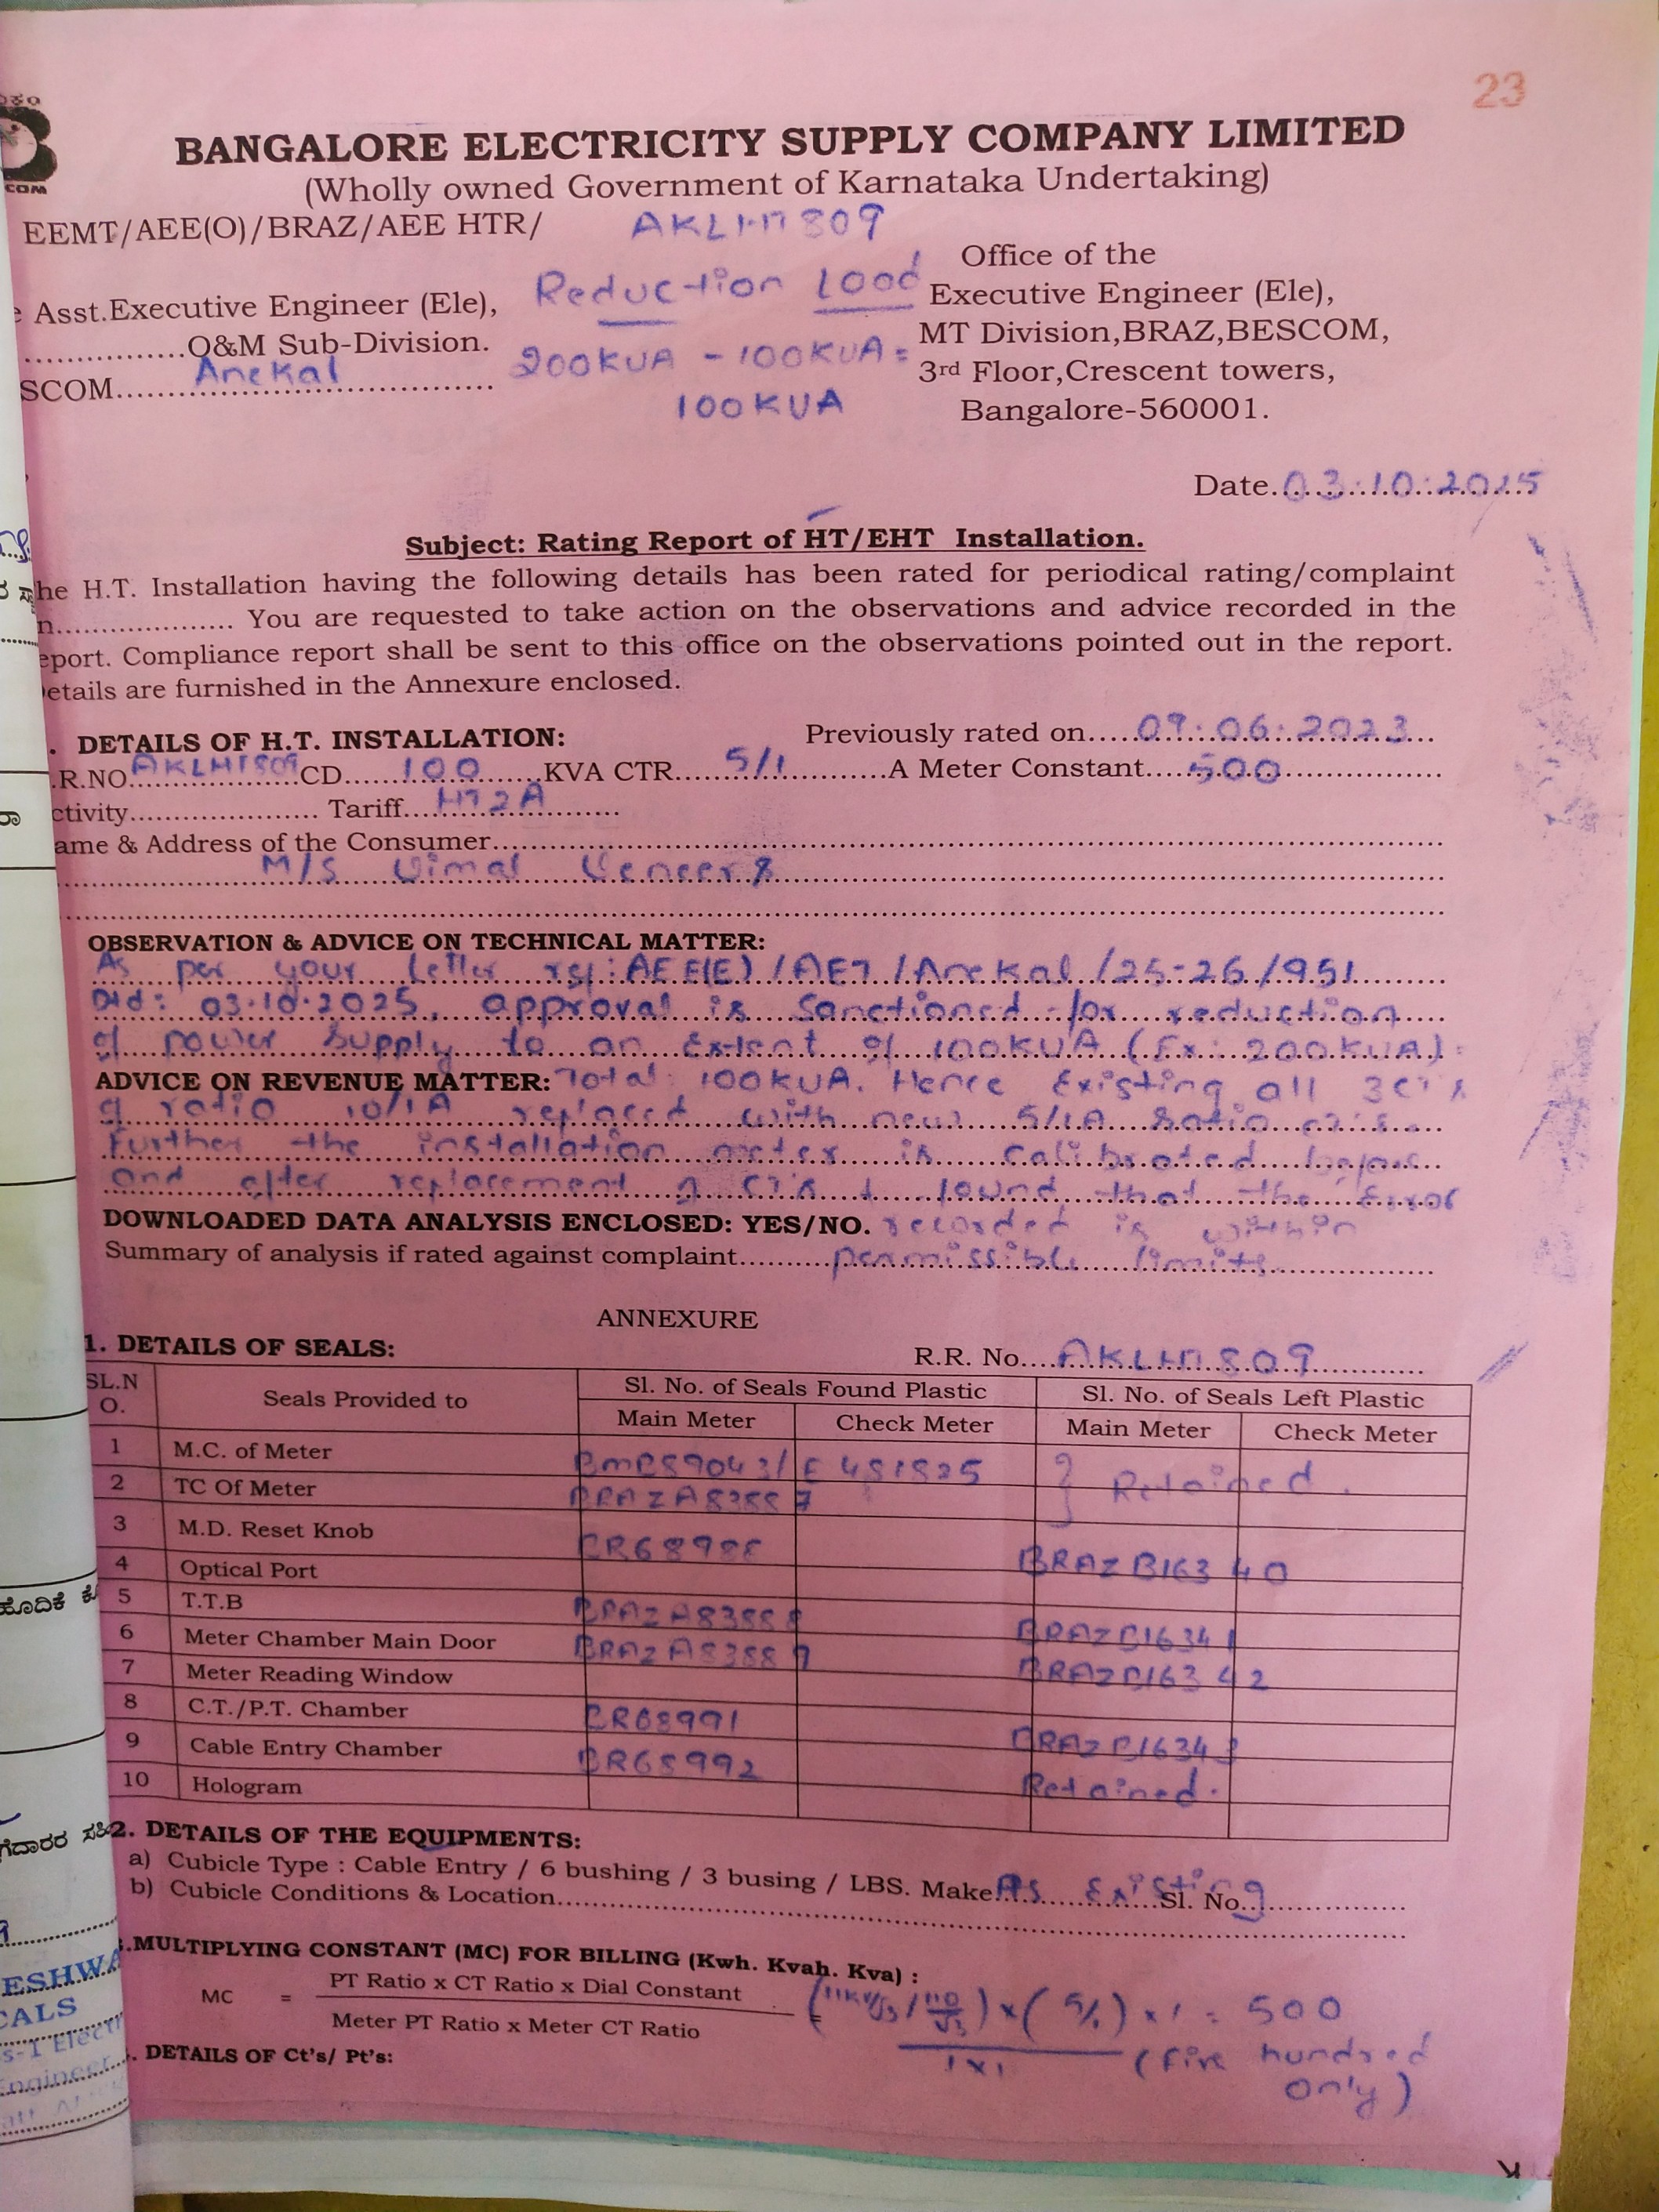 23
COM
BANGALORE ELECTRICITY SUPPLY COMPANY LIMITED
(Wholly owned Government of Karnataka Undertaking)
EEMT/AEE(O)/BRAZ/AEE HTR/ AKLHT809
Office of the
Asst.Executive Engineer (Ele), Reduction Load Executive Engineer (Ele),
...............O&M Sub-Division. 200KVA - 100KVA = MT Division,BRAZ,BESCOM,
SCOM....Anekal.... 100KVA 3rd Floor,Crescent towers,
Bangalore-560001.
Date.03.10.2025
Subject: Rating Report of HT/EHT Installation.
he H.T. Installation having the following details has been rated for periodical rating/complaint
n.................... You are requested to take action on the observations and advice recorded in the
eport. Compliance report shall be sent to this office on the observations pointed out in the report.
etails are furnished in the Annexure enclosed.
. DETAILS OF H.T. INSTALLATION: Previously rated on.....09.06.2023...
.R.NO AKLHT809 CD......100.......KVA CTR.....5/1..........A Meter Constant....500
ctivity..................... Tariff...HT2A
ame & Address of the Consumer
M/S Vimal Veneers
OBSERVATION & ADVICE ON TECHNICAL MATTER:
As per your letter ref: AEE(E)/AET/Anekal/25-26/951
Dtd: 03.10.2025, approval is sanctioned for reduction
of power supply to an extent of 100KVA (Ex: 200KVA) =
ADVICE ON REVENUE MATTER: Total: 100KVA. Hence Existing all 3CT's
of ratio 10/1A replaced with new 5/1A ratio CT's.
Further the installation meter is calibrated before
and after replacement of CT's & found that the Error
DOWNLOADED DATA ANALYSIS ENCLOSED: YES/NO. recorded is within
Summary of analysis if rated against complaint..........permissible limits.
ANNEXURE
1. DETAILS OF SEALS: R.R. No....AKLHT809
SL.N O. Seals Provided to Sl. No. of Seals Found Plastic Sl. No. of Seals Left Plastic
Main Meter Check Meter Main Meter Check Meter
1 M.C. of Meter Retained.
2 TC Of Meter BRAZA83887
3 M.D. Reset Knob
4 Optical Port BRAZB16340
5 T.T.B BRAZA83888
6 Meter Chamber Main Door BRAZA83889 BRAZB16341
7 Meter Reading Window BRAZB16342
8 C.T./P.T. Chamber BR68991
9 Cable Entry Chamber BR68992 BRAZB16343
10 Hologram Retained.
2. DETAILS OF THE EQUIPMENTS:
a) Cubicle Type : Cable Entry / 6 bushing / 3 busing / LBS. Make As Existing Sl. No
b) Cubicle Conditions & Location
.MULTIPLYING CONSTANT (MC) FOR BILLING (Kwh. Kvah. Kva) :
PT Ratio x CT Ratio x Dial Constant
MC = = (11KV/√3 / 110/√3) × (5/1) × 1 = 500
Meter PT Ratio x Meter CT Ratio 1×1 (Five hundred
. DETAILS OF Ct's/ Pt's: only)
ESHWA
CALS